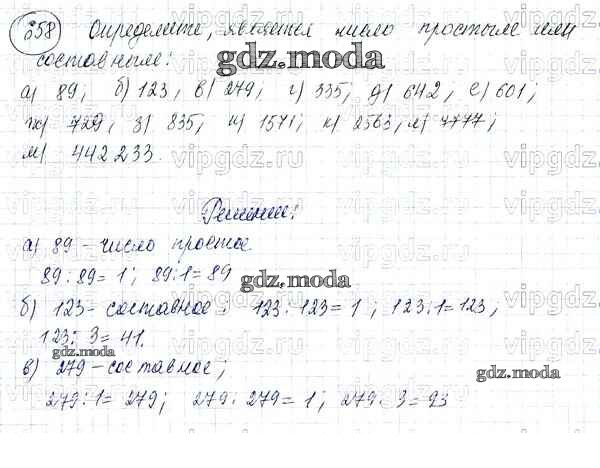 258 Определите, является число простым или
составным:
а) 89; б) 123, в) 279; г) 335; д) 642, е) 601;
ж) 729, з) 835, и) 1571; к) 2563, л) 7777;
м) 442 233.
Решение:
а) 89 - число простое
89 : 89 = 1 ; 89 : 1 = 89
б) 123 - составное ; 123 : 123 = 1 ; 123 : 1 = 123,
123 : 3 = 41.
в) 279 - составное ;
279 : 1 = 279; 279 : 279 = 1 ; 279 : 3 = 93
gdz.moda
gdz.moda
gdz.moda
gdz.moda
vipgdz.ru